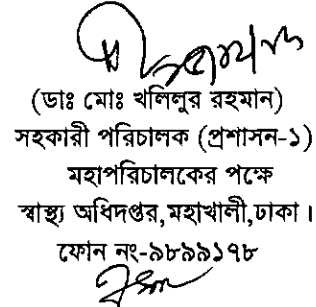 (ডাঃ মোঃ খলিলুর রহমান)
সহকারী পরিচালক (প্রশাসন-১)
মহাপরিচালকের পক্ষে
স্বাস্থ্য অধিদপ্তর,মহাখালী,ঢাকা।
ফোন নং-৯৮৯৯১৭৮